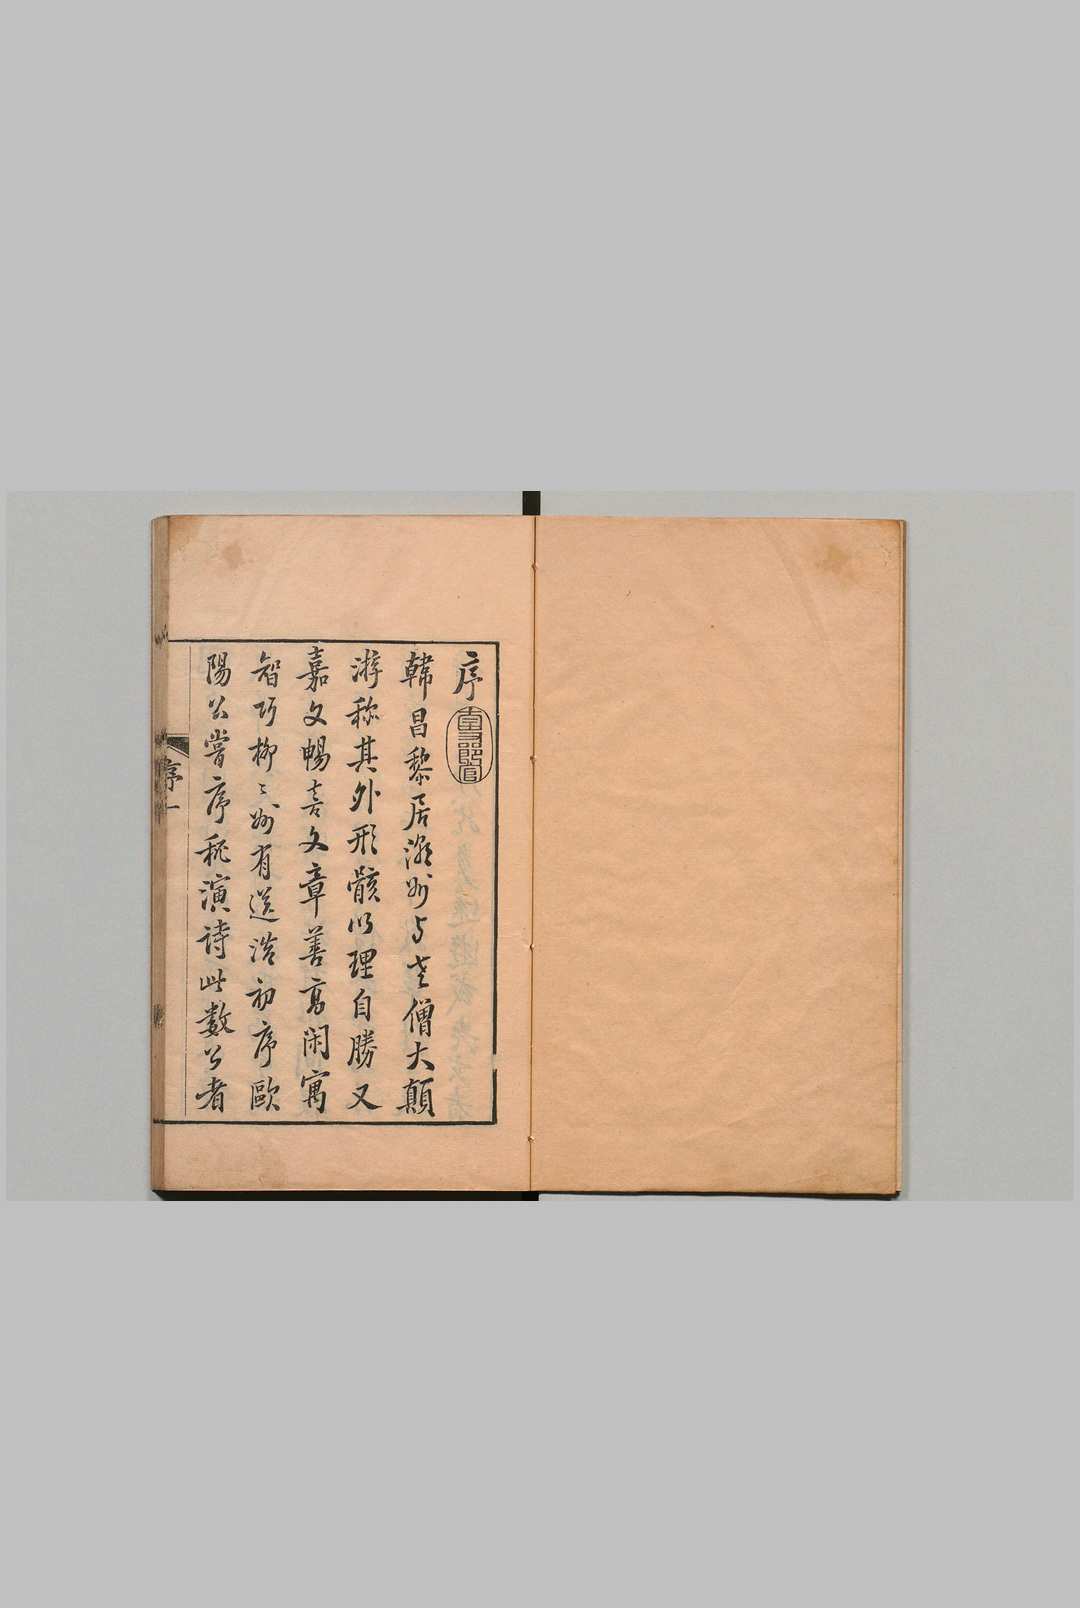 序
韓昌黎居潮州与老僧大顛
游称其外形骸以理自勝又
嘉文暢喜文章善高闲寓
智巧柳柳州有送浩初序歐
陽公嘗序秘演詩此数公者
序一